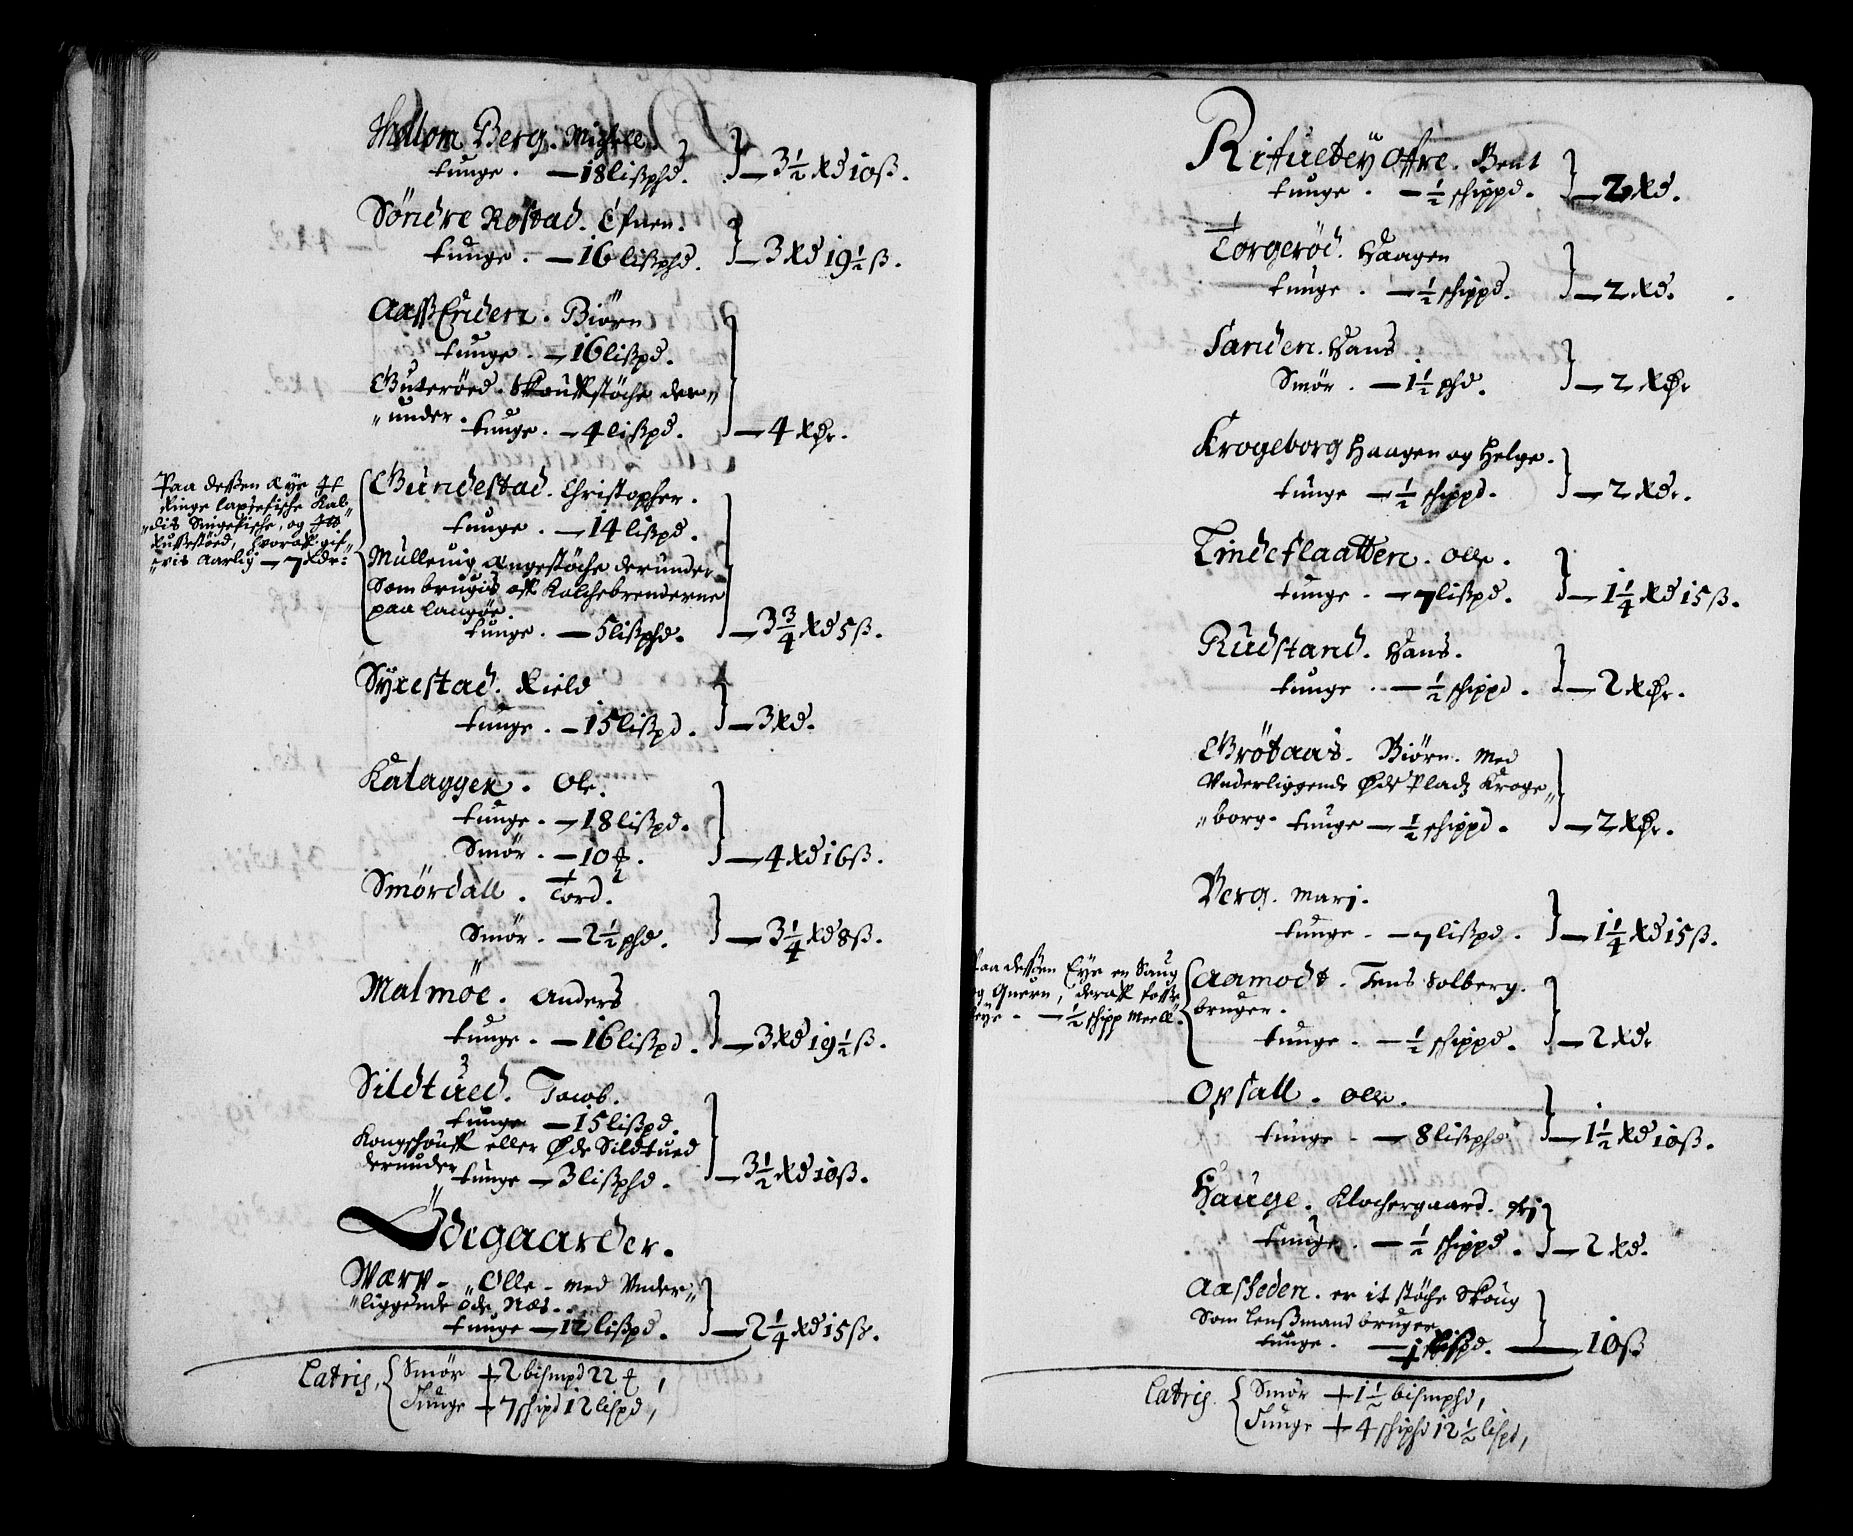 Mellom Berg. Michell.
tunge. — 18 lißphd. — 3½ Rd 10 ß.
Söndre Rostad. Efuen.
tunge. — 16 lißphd. — 3 Rd 19½ ß.
Aaßenden. Biörn
tunge. — 16 lißpd.
Guteröed. Skoufstöche der„
„under. tunge. — 4 lißpd. — 4 Rdr.
Paa deßen Eye
Ringe laxsefische
Singefische, og
hvoraff gif„
„vis Aarlig — 7 Rdr.
Gundestad. Christopher.
tunge. — 14 lißpd.
Mulleuig Engestöche derunder
Som brugis aff Kalchebrenderne
paa langöe.
tunge. — 5 lißphd. — 3¾ Rd 5 ß.
Syrestad. Kield
tunge. — 15 lißpd. — 3 Rd.
Katagger. Ole.
tunge. — 18 lißpd.
Smör. — 10 ℔. — 4 Rd 16 ß.
Smördall. Tord.
Smör. — 2½ phd. — 3¼ Rd 8 ß.
Malmöe. Anders
tunge. — 16 lißpd. — 3 Rd 19½ ß.
Sildtued. Jacob.
tunge — 15 lißpd.
Kongshouff eller Öde Sildtued
derunder
tunge — 3 lißphd. — 3½ Rd 10 ß.
Ödegaarder.
Wærp — „Olle — med Vnder„
„liggende öde Næs.
tunge — 12 lißpd. — 2¼ Rd 15 ß.
Latris, Smör + 2 bismpd 22 ℔,
Tunge + 7 schipd 12 lispd,
Öffre. Bent
tunge. — ½ schippd. — 2 Rd.
Torgeröd. Haagen
tunge. — ½ schippd. — 2 Rd.
Sanden. Hans
Smör. — 1½ phd. — 2 Rdr
Krogeborg Haagen og Helge.
tunge — ½ schippd. — 2 Rdr.
Lindeflaatten. Olle.
tunge. — 7 lißpd. — 1¼ Rd 15 ß.
Rudstand. Hans.
tunge. — ½ schippd. — 2 Rdr.
Grötaas. Biörn. Med
Vnderliggende Öde Pladz Kroge„
„borg. tunge — ½ schippd. — 2 Rdr.
Berg. Marj.
tunge. — 7 lißpd. — 1¼ Rd 15 ß.
Paa deßen Eye en Saug
og Quern, deraff foße
leye. — ½ schipp Meell.
Aamodt. Jens Solberg.
bruger.
tunge. — ½ schippd. — 2 Rdr
Opsall. Olle.
tunge. — 8 lißphd — 1½ Rd 10 ß.
Hauge. Klochergaard. frj
tunge. — ½ schippd. — 2 Rd.
Aasheden. er it stöche Skoug
Som lenßmand bruger
tunge. — 1 lißpd. — 10 ß
Latris. Smör + 1½ bismphd,
Tunge + 4 schiphd 12½ lispd,